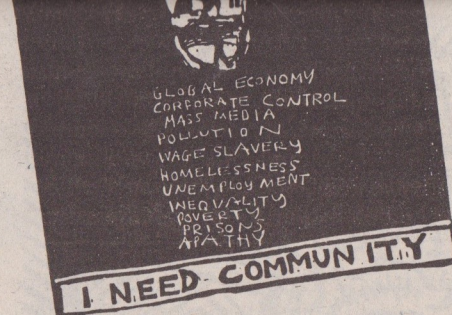 GLOBAL ECONOMY
CORPORATE CONTROL
MASS MEDIA
POLLUTION
WAGE SLAVERY
HOMELESSNESS
UNEMPLOYMENT
INEQUALITY
POVERTY
PRISONS
APATHY
I NEED COMMUNITY